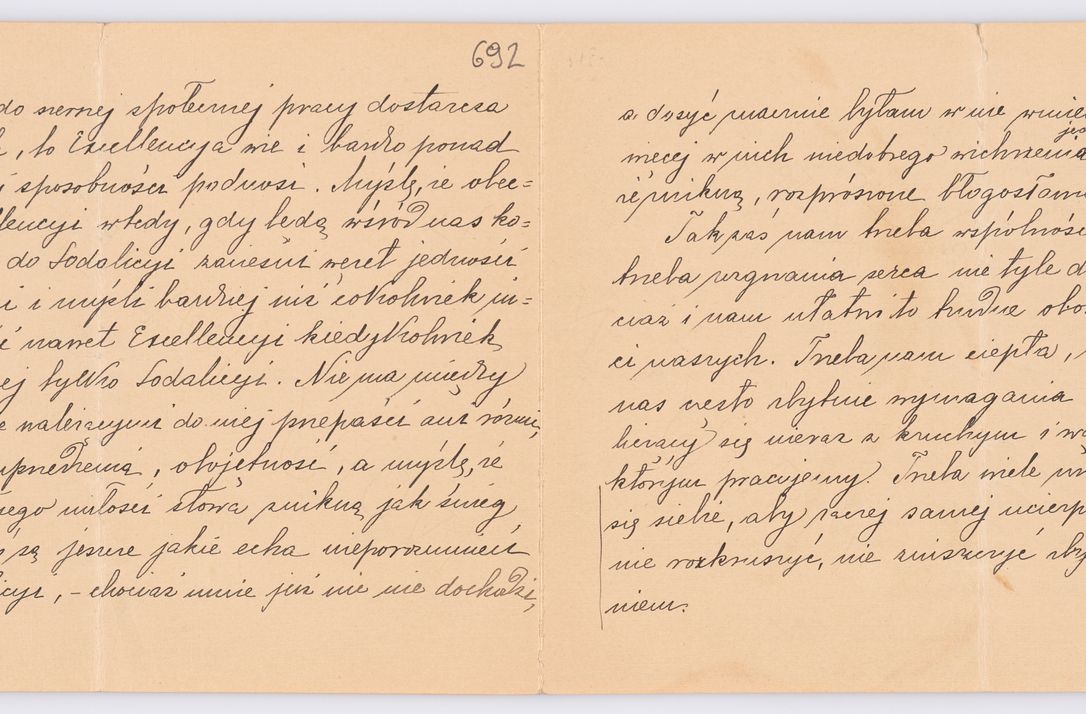 692
do szerszej społecznej pracy dostarcza
, to Excellencya wie i bardzo ponad
sposobności podnosi. Myślę, że obec=
llencyi wtedy, gdy będą wśród nas ko=
do Sodalicyi zanieśni jedności
i i myśli bardziej niż cokolwiek in=
ć nawet Excellencyi kiedykolwiek
ej tylko Sodalicyi. Nie ma między
należącymi do niej przepaści ani różni,
uprzedzenia, obojętność, a myślę, że
ego miłości słowa znikną jak śnieg
są jeszcze jakie echa nieporozumień
icyi, – chociaż mnie już nic nie dochodzi,
a dosyć znacznie byłam w nie
jes
więcej w nich niedobrego wichrzenia
że znikną, rozprószone błogosław
Jak zaś nam trzeba wspólności
trzeba serca nie tyle d
ciaż i nam ułatwi to trudne obo
ci naszych. Trzeba nam ciepła,
nas często zbytnie wymagania
się nieraz z kruchym i
którym pracujemy. Trzeba wiele
się siebie, aby raczej samej ucierp
nie rozkruszyć, nie zniszczyć zby
niem.